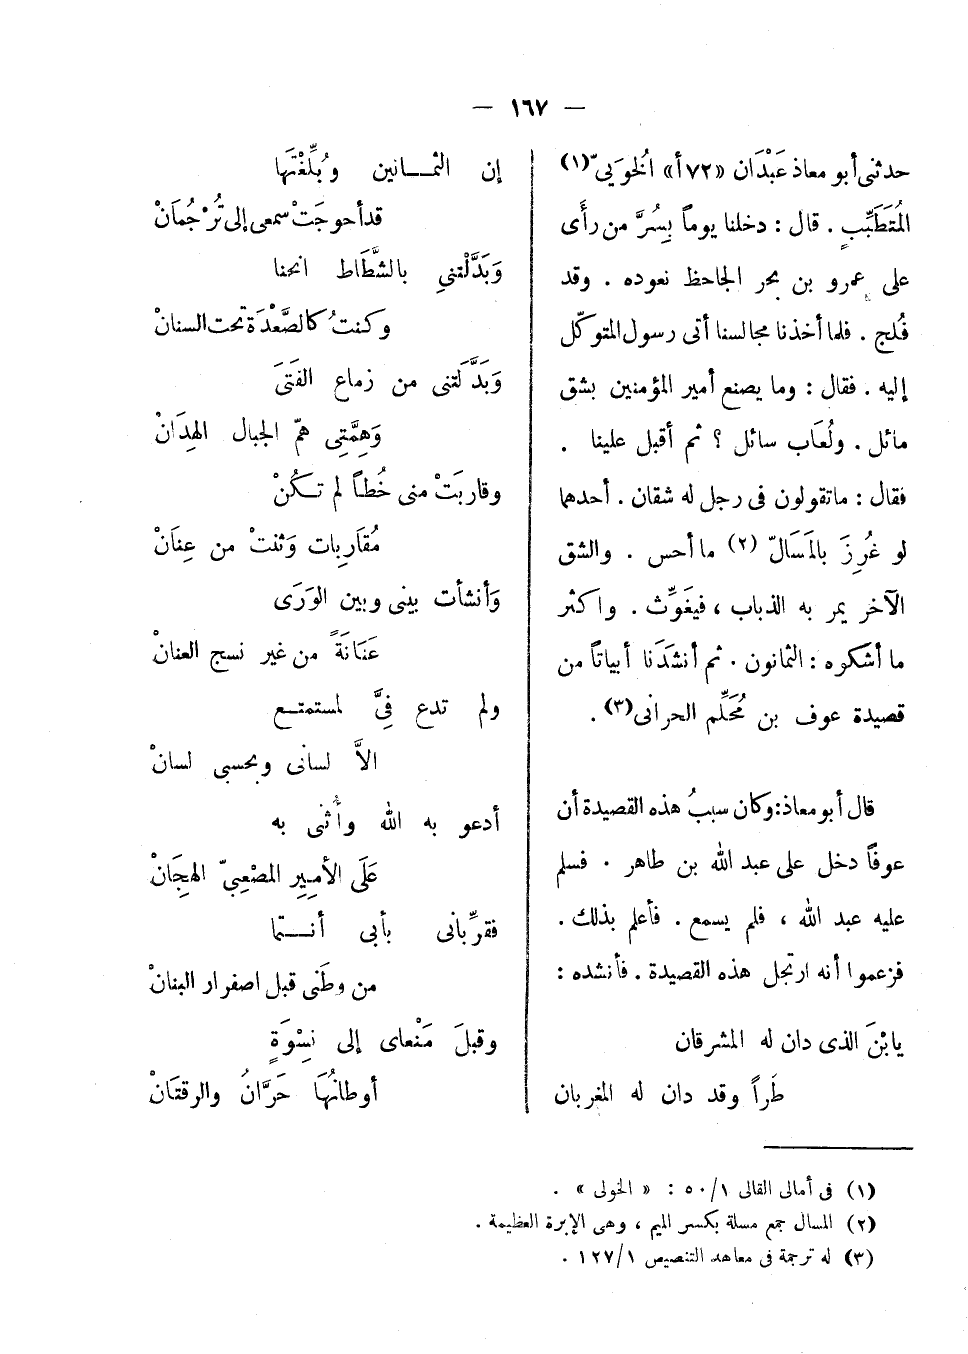 — ١٦٧ —
حدثنى أبو معاذ عَبْدَان «٧٢أ» الخُوَيِىّ (١)
المُتَطَبِّب . قال : دخلنا يوماً بِسُرَّ من رأَى
على عمرو بن بحر الجاحظ نعوده . وقد
فُلج . فلما أخذنا مجالسنا أتى رسول المتوكّل
إليه . فقال : وما يصنع أمير المؤمنين بشق
مائل . ولُعَاب سائل ؟ ثم أقبل علينا .
فقال : ما تقولون فى رجل له شقان . أحدهما
لو غُرِزَ بالمَسَالّ (٢) ما أحس . والشق
الآخر يمر به الذباب ، فيَغَوِّث . واكثر
ما أشكوه : الثمانون . ثم أنشَدَنا أبياتاً من
قصيدة عوف بن مُحَلِّم الحرانى (٣) .
قال أبو معاذ : وكان سببُ هذه القصيدة أن
عوفاً دخل على عبد الله بن طاهر . فسلم
عليه عبد الله ، فلم يسمع . فأعلم بذلك .
فزعموا أنه ارتجل هذه القصيدة . فأنشده :
يابْنَ الذى دان له المشرقان
طَراً وقد دان له المغربان
إن الثمــانين وبُلِّغْتَها
قد أحوجَتْ سمعى إلى تُرْجُمَانْ
وَبَدَّلْتنىِ بالشَّطَاط انحنا
وكنتُ كالصَّعْدَة تحت السنانْ
وَبَدَّلَتنى من زماع الفَتَى
وَهِمَّتِى همّ الجبال الهِدَانْ
وقاربَتْ منى خُطاً لم تكُنْ
مُقَارِبات وَثنتْ من عِنَانْ
وَأنشأت بينى وبين الوَرَى
عَنَانَةً من غير نسج العنانْ
ولم تدع فِىَّ لمستمتـع
الاَّ لسانى وبحسبى لسانْ
أدعو به الله وأُثنى به
عَلَى الأمِيرِ المصْعِبىّ الهِجَانْ
فقرِّبانى بأبى أنــتما
من وطَنى قبل اصفرار البنانْ
وقبلَ مَنْعاى إلى نِسْوَةٍ
أوطانُهَا حَرَّانُ والرقتَانْ
(١) فى أمالى القالى ٥٠/١ : « الخولى » .
(٢) المسال جمع مسلة بكسر الميم ، وهى الإبرة العظيمة .
(٣) له ترجمة فى معاهد التنصيص ١٢٧/١ .